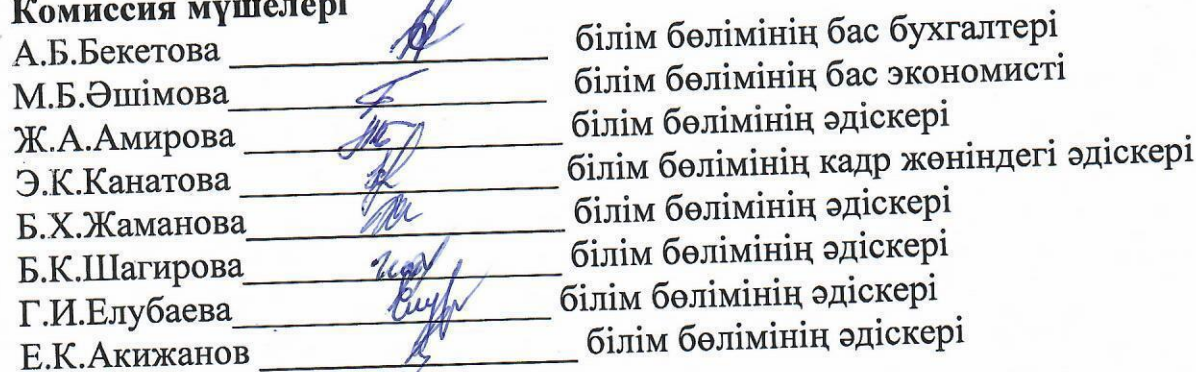 Комиссия мүшелері
А.Б.Бекетова ________________ білім бөлімінің бас бухгалтері
М.Б.Әшімова ________________ білім бөлімінің бас экономисті
Ж.А.Амирова ________________ білім бөлімінің әдіскері
Э.К.Канатова ________________ білім бөлімінің кадр жөніндегі әдіскері
Б.Х.Жаманова ________________ білім бөлімінің әдіскері
Б.К.Шагирова ________________ білім бөлімінің әдіскері
Г.И.Елубаева ________________ білім бөлімінің әдіскері
Е.К.Акижанов ________________ білім бөлімінің әдіскері